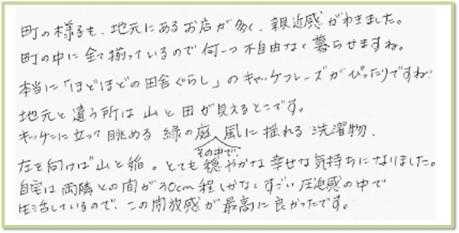 町の様子も、地元にあるお店が多く、親近感がわきました。
町の中に全て揃っているので何一つ不自由なく暮らせますね。
本当に「ほどほどの田舎ぐらし」のキャッチフレーズがぴったりですね
地元と違う所は山と田が見えるとこです。
キッチンに立って眺める緑の庭、風に揺れる洗濯物、
左を向けば山と稲。とても その中で、穏やかな幸せな気持ちになりました。
自宅は両隣との間が30cm程しかなくすごい圧迫感の中で
生活しているので、この開放感が最高に良かったです。